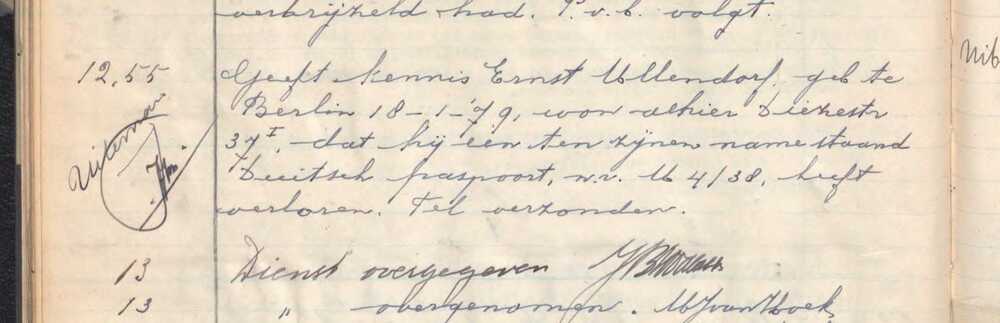 verbrijzeld had. P.v.b. volgt.
12.55 Geeft kennis Ernst Ullendorf, geb te
Berlin 18-1-'79, won alhier Diezestr
37 I, dat hij een ten zijnen name staand
Duitsch paspoort, nr. U 4/38, heeft
verloren. Tel verzonden.
13 Dienst overgegeven
13 " overgenomen.